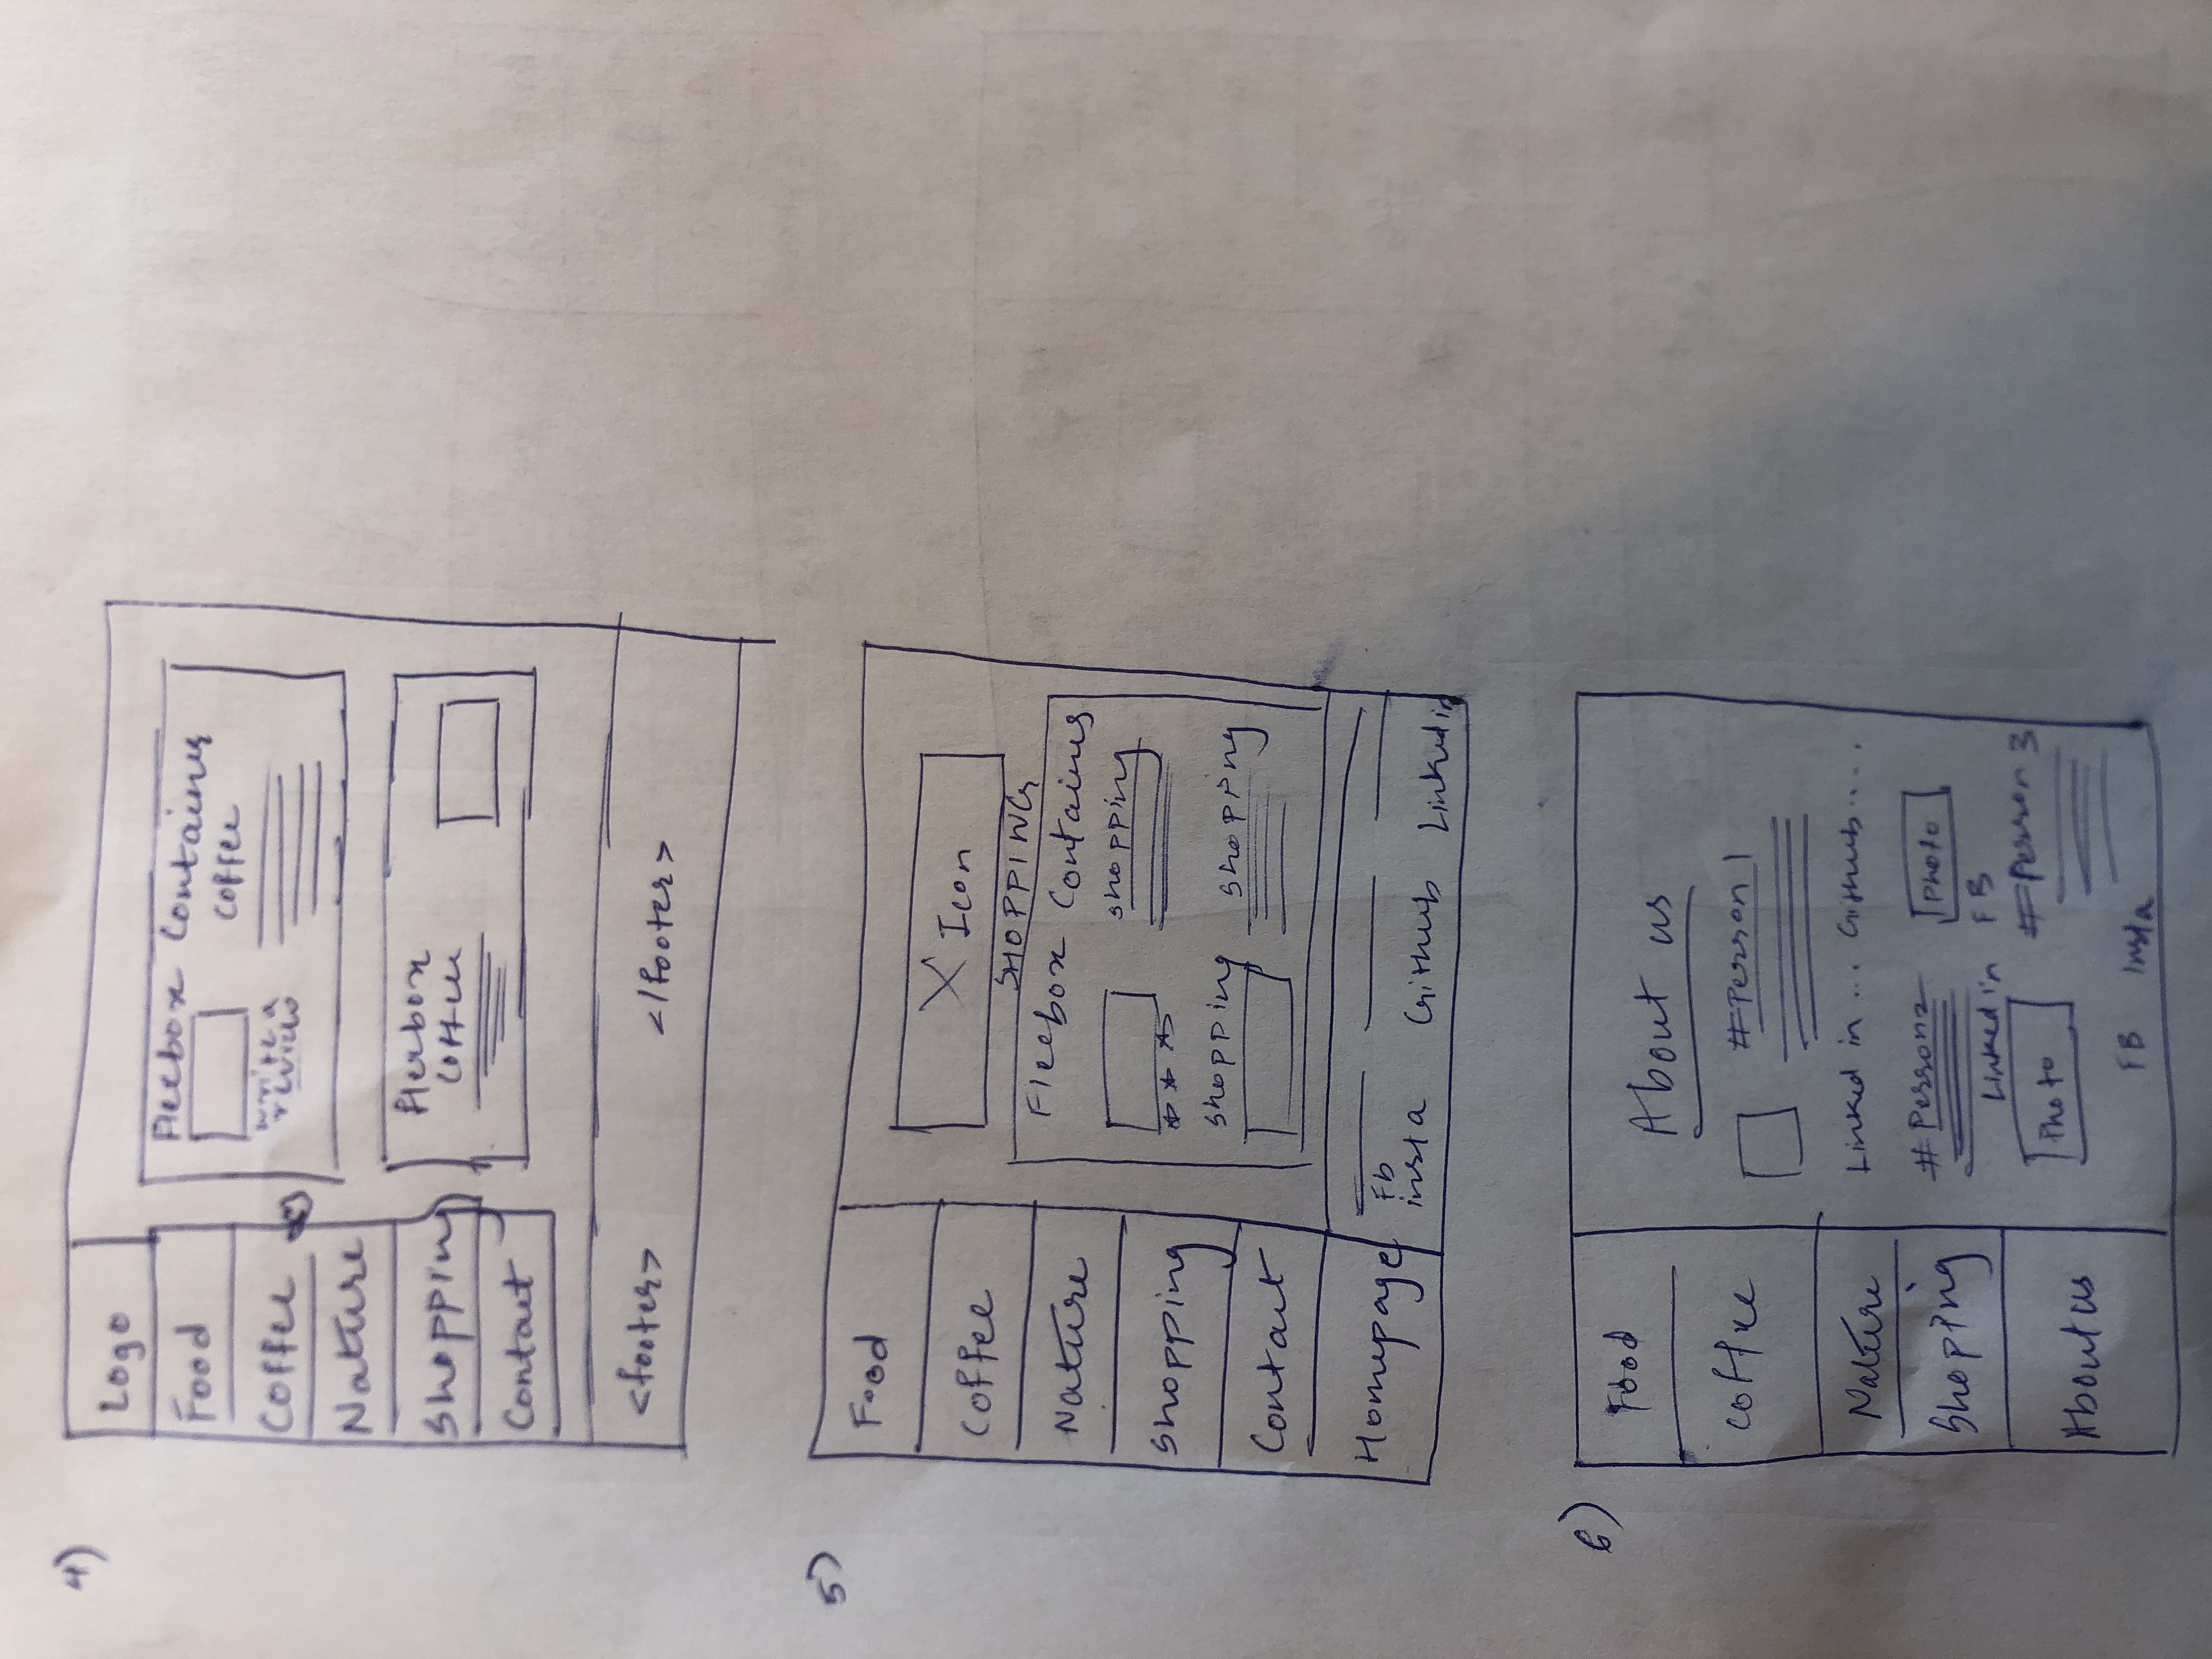 4)
Logo
Food
Coffee
Nature
Shopping
Contact
Flexbox Container
Coffee
write a
review
Flexbox
Coffee
<footer> </footer>
5)
Food
Coffee
Nature
Shopping
Contact
Homepage
X Icon
SHOPPING
Flexbox Container
shopping
shopping shopping
Fb
insta Github Linkedin
6)
Food
Coffee
Nature
Shopping
About us
About us
#Person 1
Linked in ... Github....
#Person2 Photo
Linked in FB
Photo #Person 3
FB Insta